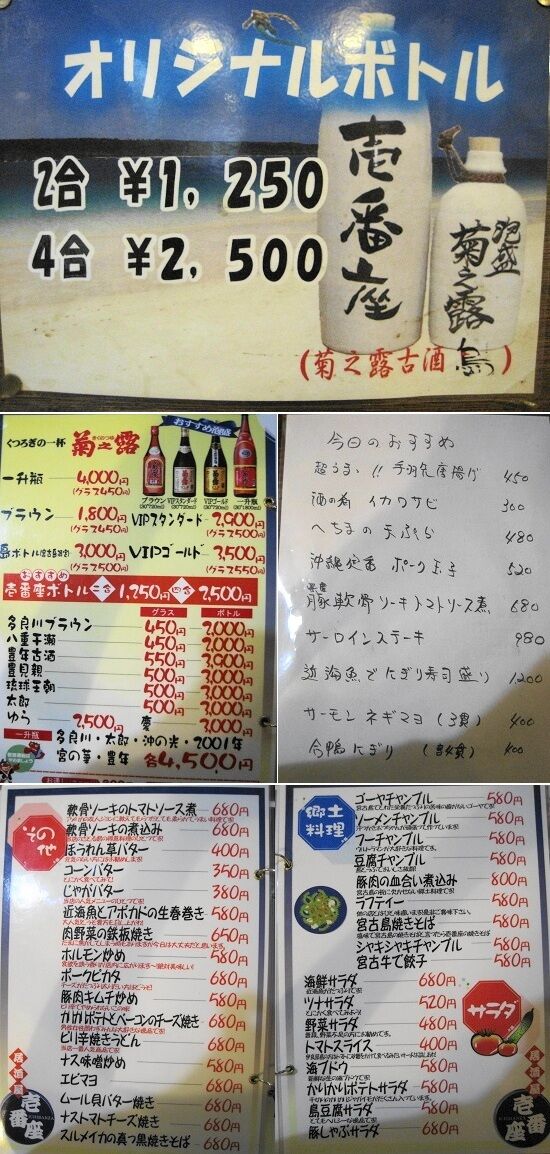 オリジナルボトル
2合 ¥1,250
4合 ¥2,500
壱番座
泡盛
菊之露
(菊之露古酒 )
くつろぎの一杯 菊之露
おすすめ泡盛
一升瓶 4,000円
(グラス450円)
ブラウン 1,800円
(グラス450円)
ブラウン
VIPスタンダード
VIPゴールド
一升瓶
VIPスタンダード 2,900円
(グラス500円)
3,000円
(グラス500円)
VIPゴールド 3,500円
(グラス550円)
おすすめ
壱番座ボトル二合 1,250円 四合 2,500円
グラス ボトル
多良川ブラウン 450円 2,000円
八重干瀬 450円 2,000円
豊年古酒 550円 3,900円
豊見親 500円 3,000円
琉球王朝 500円 3,000円
太郎 500円 3,000円
ゆら 2,500円 慶 3,000円
一升瓶
多良川・太郎・沖の光・2001年
宮の華・豊年 各4,500円
今日のおすすめ
超うまい!! 手羽先唐揚げ 450
酒の肴 イカワサビ 300
へちまの天ぷら 480
沖縄定番 ポーク玉子 520
豚軟骨ソーキトマトソース煮 680
サーロインステーキ 980
近海魚でにぎり寿司盛り 1,200
サーモンネギマヨ (3貫) 400
合鴨にぎり 400
その他
軟骨ソーキのトマトソース煮 680円
軟骨ソーキの煮込み 680円
ほうれん草バター 400円
コーンバター 350円
じゃがバター 380円
近海魚とアボカドの生春巻き 580円
肉野菜の鉄板焼き 650円
ホルモン炒め 580円
ポークピカタ 680円
豚肉キムチ炒め 580円
かりかりポテトとベーコンのチーズ焼き 680円
ピリ辛焼きうどん 680円
ナス味噌炒め 580円
エビマヨ 680円
ムール貝バター焼き 680円
ナストマトチーズ焼き 680円
スルメイカの真っ黒焼きそば 680円
居酒屋
壱番座
郷土料理
ゴーヤチャンプル 580円
ソーメンチャンプル 580円
フーチャンプル 580円
豆腐チャンプル 580円
豚肉の血合い煮込み 800円
ラフテイー 580円
宮古島焼きそば 580円
シャキシャキチャンプル 580円
宮古牛で餃子 580円
サラダ
海鮮サラダ 680円
ツナサラダ 520円
野菜サラダ 480円
トマトスライス 400円
海ブドウ 580円
かりかりポテトサラダ 580円
島豆腐サラダ 580円
豚しゃぶサラダ 680円
居酒屋
壱番座